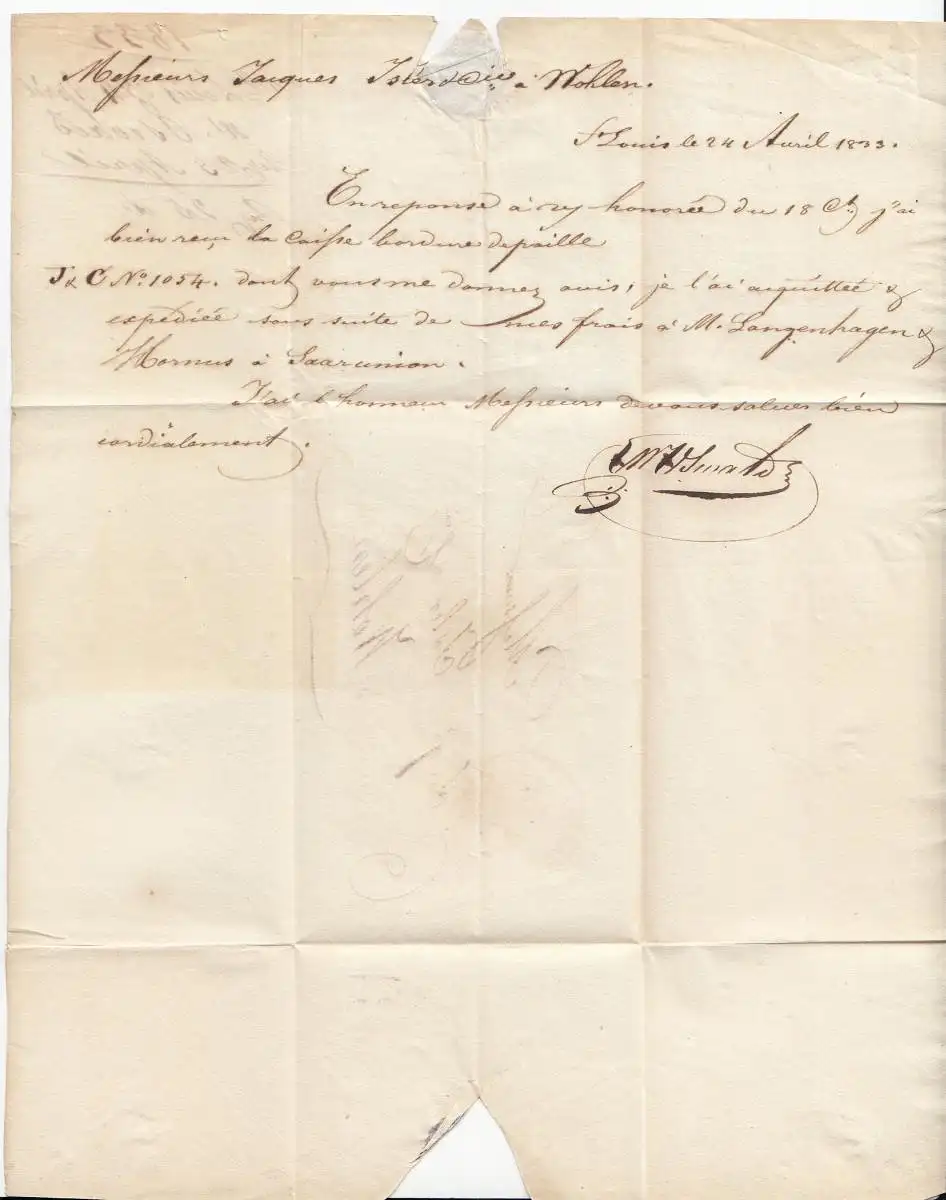 Messieurs Jacques Isler & Cie à Wohlen.
St Louis le 24 Avril 1833.
En reponse à votre honorée du 18 Ct. j'ai
bien reçu la caisse bordure de paille
J & C No. 1054. dont vous me donnez avis; je l'ai acquittée &
expediée sous suite de mes frais à M. Langenhagen &
Hornus à Saarunion.
J'ai l'honneur Messieurs de vous saluer bien
cordialement.